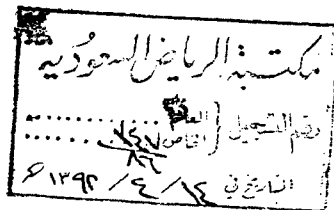 مكتبة الرياض السعودية
رقم التسجيل { العام
الخاص ٧٤٧ / ٨٦
التاريخ في ١٤ / ٤ / ١٣٩٢ هـ